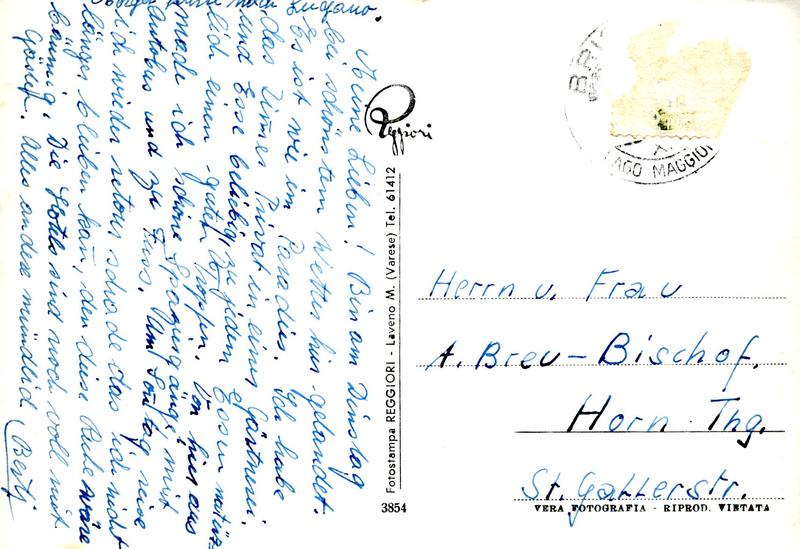 Meine Lieben! Bin am Dinstag
bei schönstem Wetter hier gelandet.
Es ist wie im Paradies. Ich habe
das Zimmer Privat in einer Gärtnerei
und Esse beliebig, zu jedem Essen natür-
lich einen guten Tropfen. Von hier aus
mache ich schöne Spaziergänge mit
Autobus und zu Fuss. Am Sontag reise
ich wieder retour, schade das ich nicht
länger bleiben kan, den diese Ruhe wäre
bäumig. Die Hotels sind noch voll mit
Gästen. Alles andere mündlich. Berty
nach Lugano.
Reggiori
Fotostampa REGGIORI - Laveno M. (Varese) Tel. 61412
3854
LAGO MAGGIOR
Herrn u. Frau
A. Breu-Bischof.
Horn. Thg.
St. Gallerstr.
VERA FOTOGRAFIA - RIPROD. VIETATA